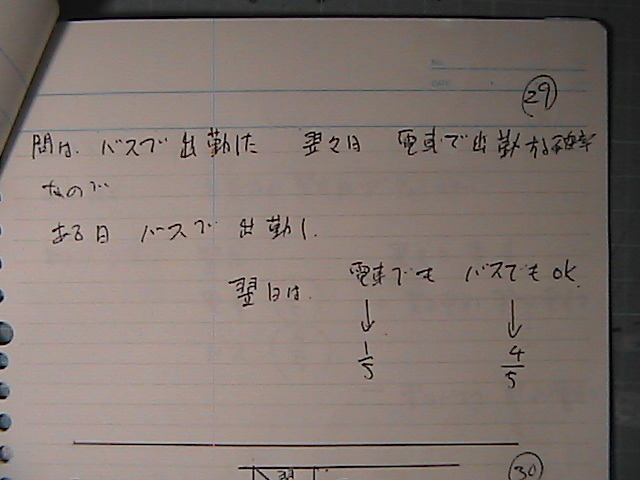 NO.
DATE
29
問は、バスで出勤した 翌々日 電車で出勤する確率
なので
ある日 バスで 出勤し、
翌日は、 電車でも バスでも OK.
↓ ↓
1/5 4/5
30
翌